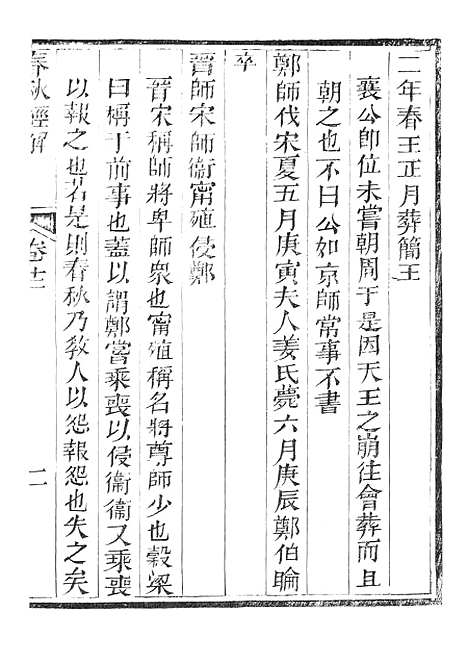 二年春王正月葬簡王
襄公卽位未嘗朝周于是因天王之崩徃會葬而且
朝之也不曰公如京師常事不書
鄭師伐宋夏五月庚寅夫人姜氏薨六月庚辰鄭伯睔
卒
晉師宋師衞甯殖侵鄭
晉宋稱師將卑師衆也甯殖稱名將尊師少也穀梁
曰稱于前事也葢以謂鄭嘗乘喪以侵衞衞又乘喪
以報之也若是則春秋乃敎人以怨報怨也失之矣
春秋經解
卷十二
二